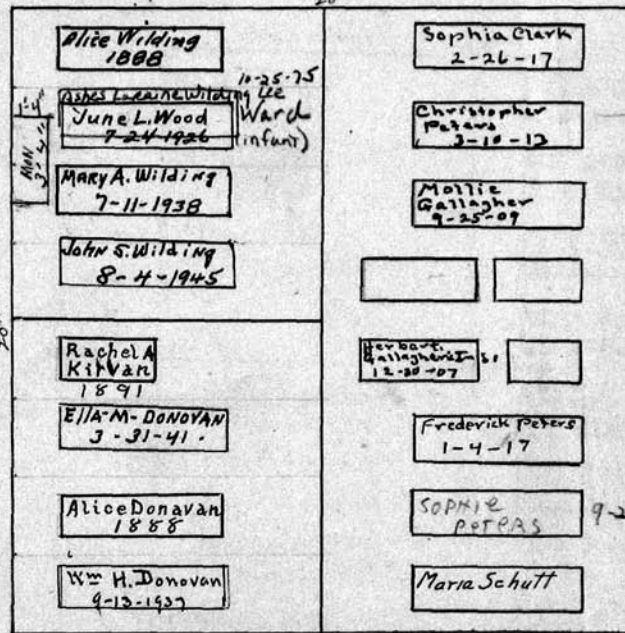 Alice Wilding
1888
10-25-75
Ashes Loraine Wilding Lee
June L. Wood
Ward
7-24-1926
(infant)
1'-4"
MON
3'-4"
MARY A. Wilding
7-11-1938
John S. Wilding
8-4-1945
Rachel A
Kirvan
1891
Ella-M-DONOVAN
3-31-41.
Alice Donavan
1888
Wm H. Donovan
9-13-1937
Sophia Clark
2-26-17
Christopher
Peters
3-10-13
Mollie
Gallagher
9-25-09
Herbert.
Gallagher's Inf.
12-30-07
Frederick Peters
1-4-17
SOPHIE
PETERS
9-2
Maria Schutt